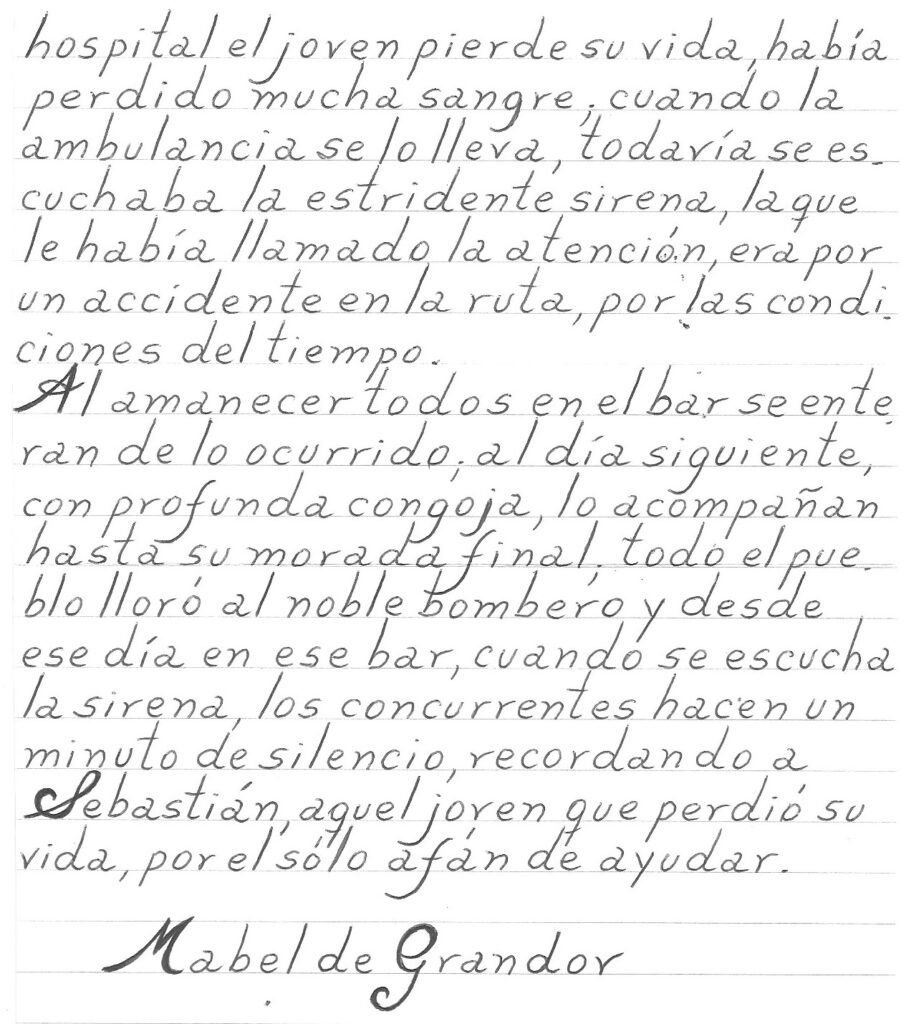 hospital el joven pierde su vida, había
perdido mucha sangre; cuando la
ambulancia se lo lleva, todavía se es-
cuchaba la estridente sirena, la que
le había llamado la atención, era por
un accidente en la ruta, por las condi-
ciones del tiempo.
Al amanecer todos en el bar se ente-
ran de lo ocurrido; al día siguiente,
con profunda congoja, lo acompañan
hasta su morada final; todo el pue-
blo lloró al noble bombero y desde
ese día en ese bar, cuando se escucha
la sirena, los concurrentes hacen un
minuto de silencio, recordando a
Sebastián, aquel joven que perdió su
vida, por el sólo afán de ayudar.
Mabel de Grandor